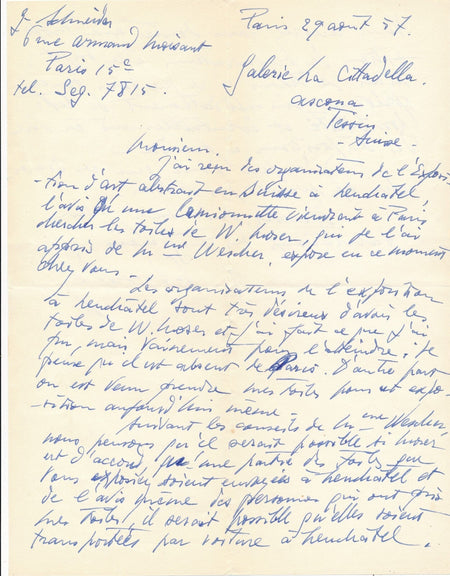 G. Schneider
6 rue Armand Moisant
Paris 15e
tel. Seg. 7815.
Paris 29 août 57.
Galerie La Cittadella.
Ascona
Tessin
- Suisse -
Monsieur.
J'ai reçu des organisateurs de l'Exposi-
-tion d'art abstrait en Suisse à Neuchâtel,
l'avis qu'une camionnette viendrait à Paris
chercher les toiles de W. Moser, qui je l'ai
appris de Mme Wescher, expose en ce moment
chez vous -
Les organisateurs de l'exposition
à Neuchâtel sont très désireux d'avoir les
toiles de W. Moser et j'ai fait ce que j'ai
pu, mais vainement pour l'atteindre; je
pense qu'il est absent de Paris. D'autre part
on est venu prendre mes toiles pour cet expo-
-sition aujourd'hui même -
Suivant les conseils de Mme Wescher,
nous pensons qu'il serait possible si Moser
est d'accord qu'une partie des toiles que
vous exposiez, soient envoyées à Neuchâtel et
de l'avis même des personnes qui ont pris
mes toiles, il serait possible qu'elles soient
transportées par voiture à Neuchâtel.